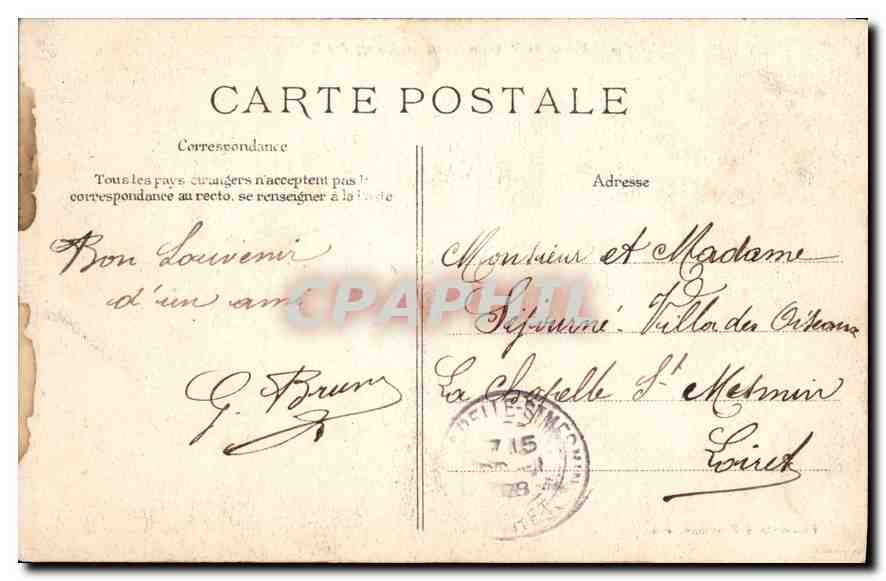 CARTE POSTALE
Correspondance
Tous les pays étrangers n'acceptent pas la
correspondance au recto, se renseigner à la Poste
Adresse
Bon Souvenir
d'un ami
G. Brun
Monsieur et Madame
Séjourné. Villa des Oiseaux
La Chapelle St Mesmin
Loiret
CPAPHIL
CHAPELLE-St-MESMIN
7 15
08
LOIRET